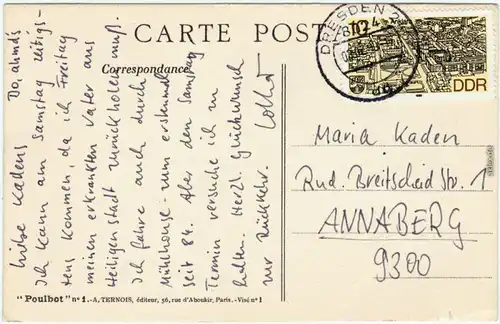 CARTE POSTALE
Correspondance
Do, abends
Liebe Kadens
Ich kann am Samstag frühestens
kommen, da ich Freitag
meinen erkrankten Vater aus
Heiligenstadt zurückholen muß.
Ich fahre auch durch
Mühlhouse - zum erstenmal
seit 84. Aber den Samstag
Termin versuche ich zu
halten. Herzl. Glückwunsch
zur Rückkehr. Lothar
DRESDEN
DDR
Maria Kaden
Rud. Breitscheid Str. 1
ANNABERG
9300
"Poulbot" nº 1.-A. TERNOIS, éditeur, 56, rue d'Aboukir, Paris. - Visé nº 1